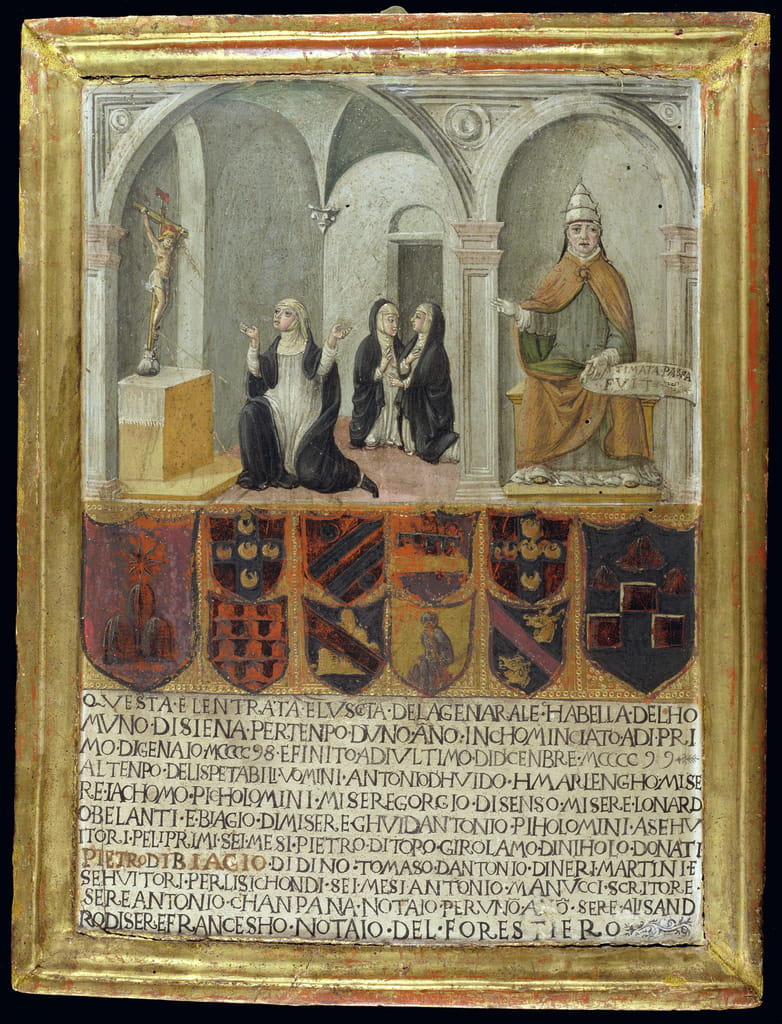 STIMATA·PASSA
FVIT
QVESTA·E·LENTRATA·ELVSCTA·DELAGENARALE·HABELLA·DELHO
MVNO·DISIENA·PERTENPO·DVNO·ANO·INCHOMINCIATO·ADI·PRI
MO·DIGENAIO·MCCCC98·EFINITO·ADIVLTIMO·DIDCENBRE·MCCCC99
ALTENPO·DELISPETABILI·VOMINI·ANTONIODHVIDO·HMARLENGHO·MISE
RE·IACHOMO·PICHOLOMINI·MISEREGORGIO·DISENSO·MISERE·LONARD
OBELANTI·E·BIAGIO·DIMISERE·GHVIDANTONIO·PIHOLOMINI·ASEHV
ITORI·PELIPRIMI·SEI·MESI·PIETRO·DITOPO·GIROLAMO·DINIHOLO·DONATI
PIETRODIBIAGIO·DIDINO·TOMASO·DANTONIO·DINERI·MARTINI·E
SEHVITORI·PERLISICHONDI·SEI·MESI·ANTONIO·MANVCCI·SCRITORE
SERE·ANTONIO·CHANPANA·NOTAIO·PERVNO·ANO·SERE·ALISAND
RODISEREFRANCESHO·NOTAIO·DEL·FORESTIERO